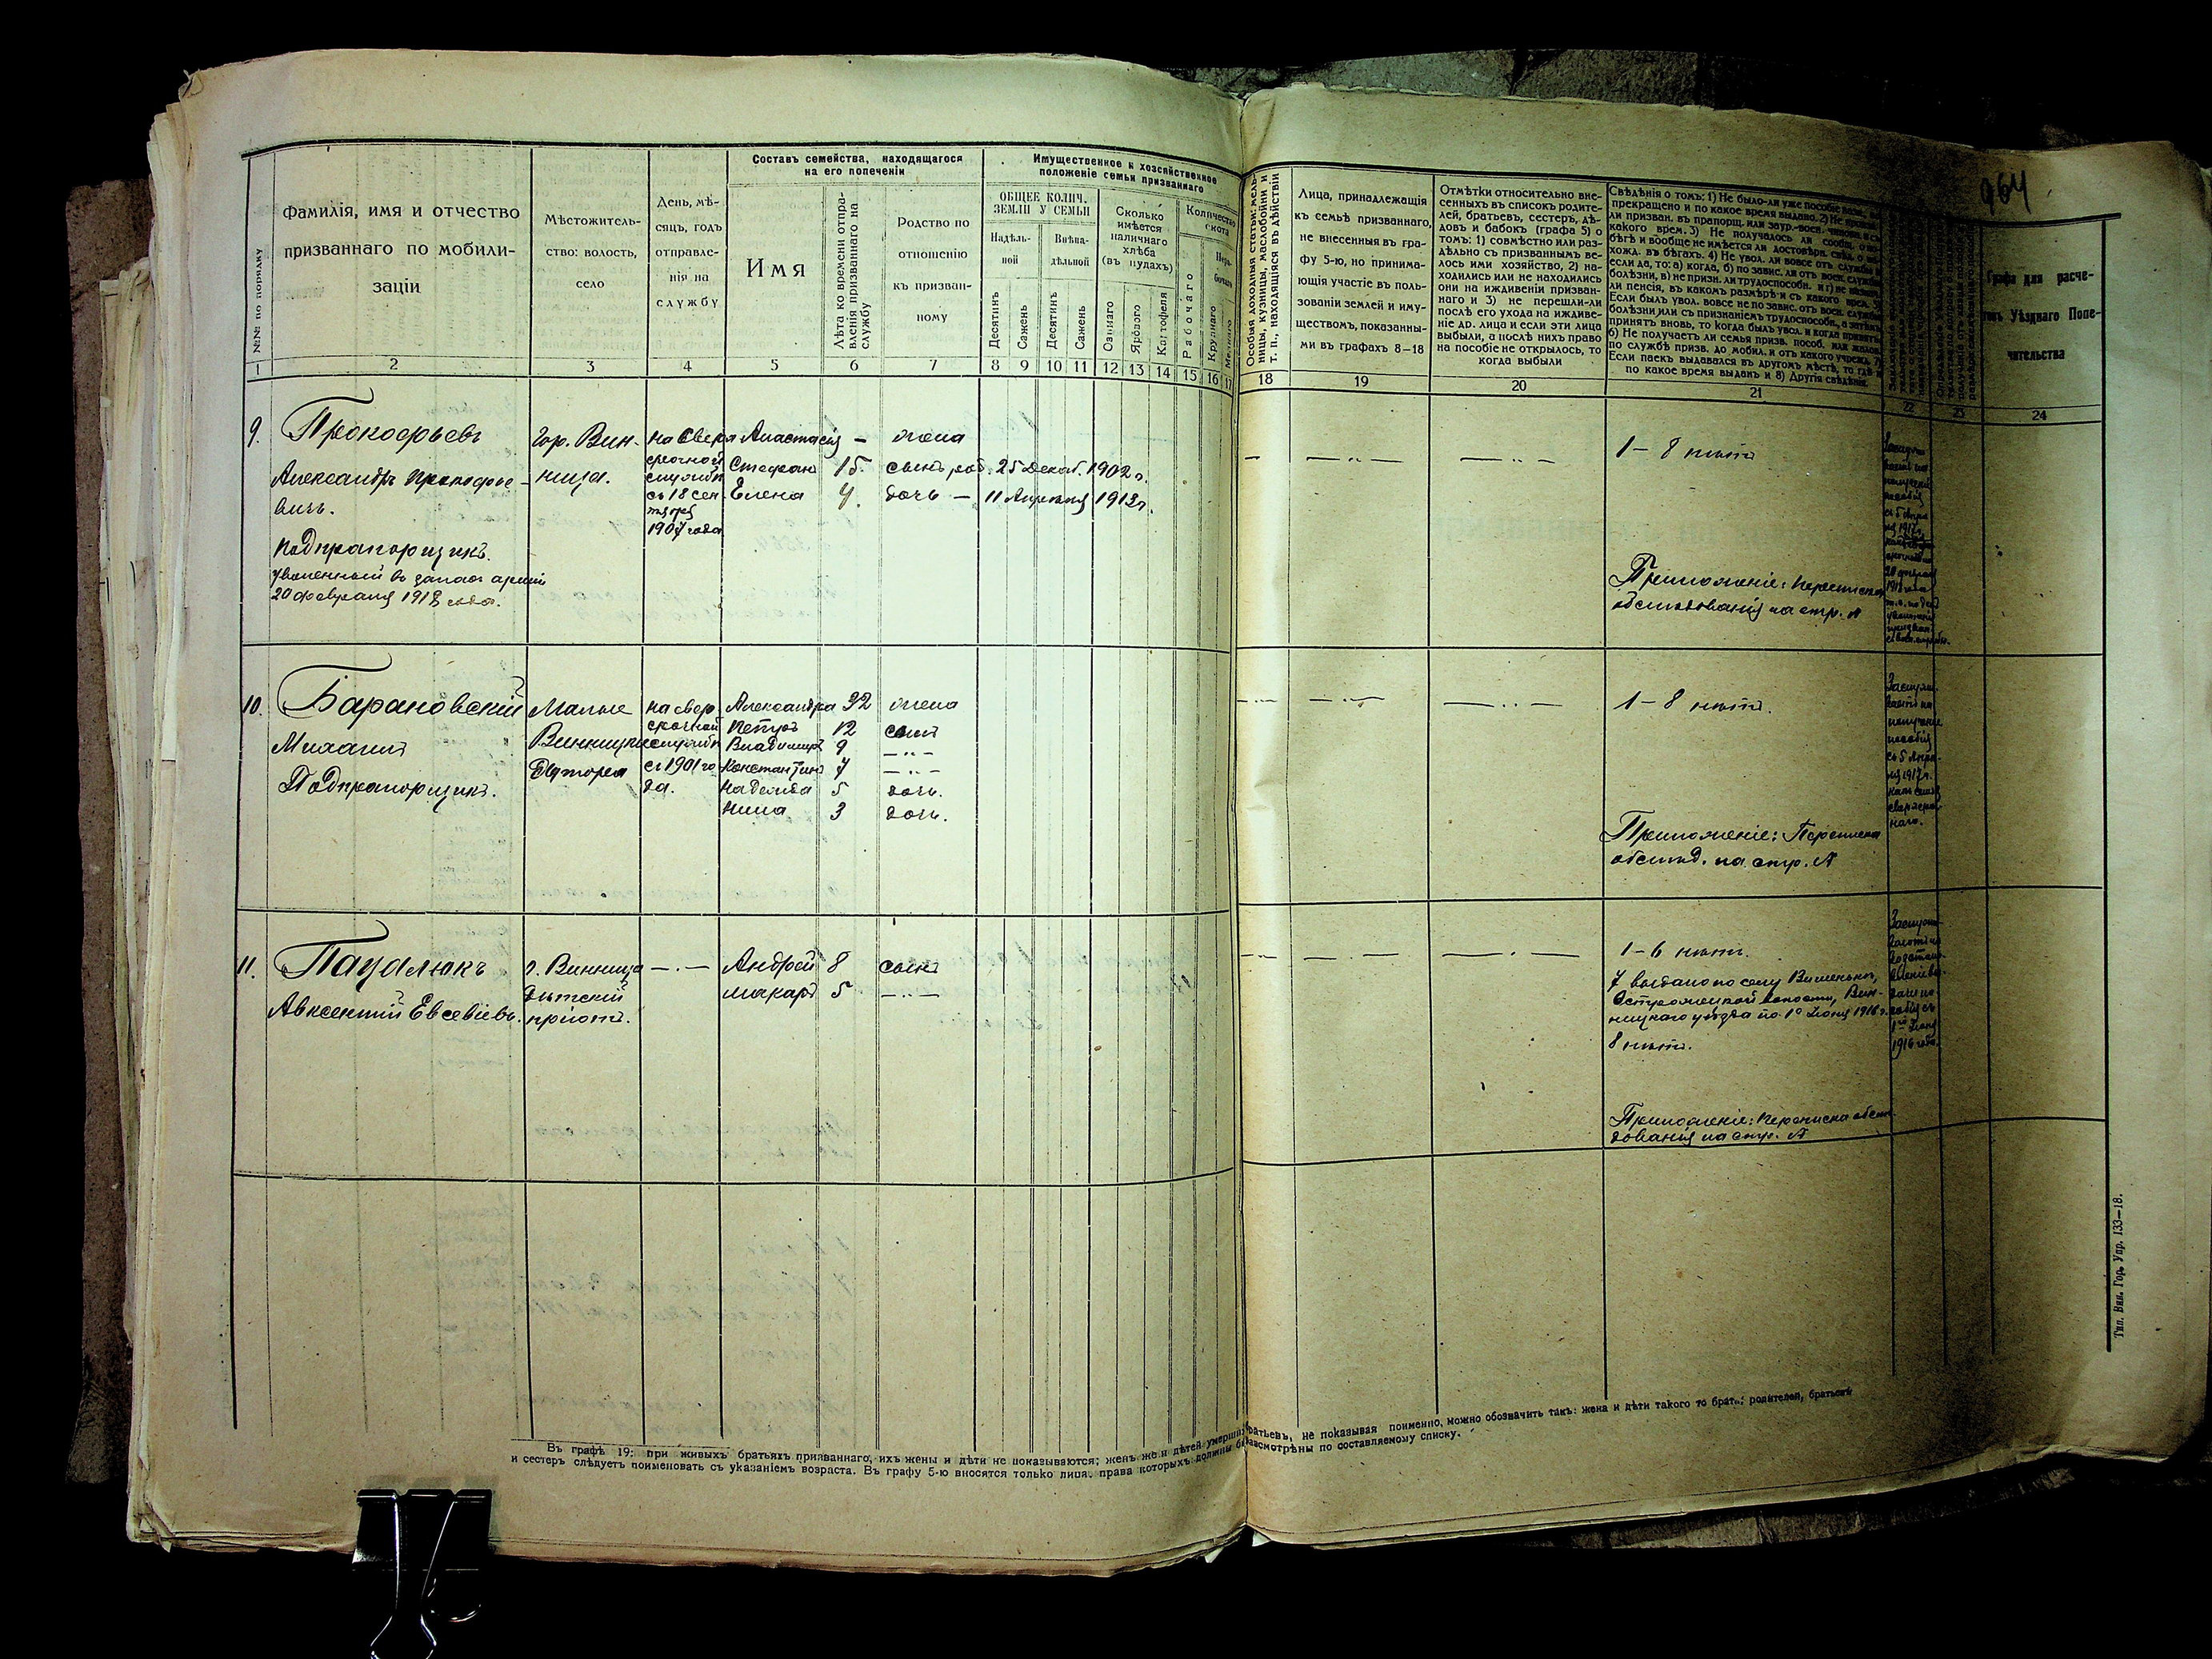 964
№№ по порядку
Фамилія, имя и отчество
призваннаго по мобили-
заціи
Мѣстожитель-
ство: волость,
село
День, мѣ-
сяцъ, годъ
отправле-
нія на
службу
Составъ семейства, находящагося
на его попеченіи
Имя
Лѣта ко времени отпра-
вленія призваннаго на
службу
Родство по
отношенію
къ призван-
ному
Имущественное и хозяйственное
положеніе семьи призваннаго
ОБЩЕЕ КОЛИЧ.
ЗЕМЛИ У СЕМЬИ
Надѣль-
ной
Внѣна-
дѣльной
Десятинъ
Сажень
Десятинъ
Сажень
Сколько
имѣется
наличнаго
хлѣба
(въ пудахъ)
Озимаго
Ярового
Картофеля
Количество
скота
Рабочаго
Крупнаго
Мелкаго
Особыя доходныя статьи: мель-
ницы, кузницы, маслобойни и
т. п., находящіяся въ дѣйствіи
Лица, принадлежащія
къ семьѣ призваннаго,
не внесенныя въ гра-
фу 5-ю, но принима-
ющія участіе въ поль-
зованіи землей и иму-
ществомъ, показанны-
ми въ графахъ 8—18
Отмѣтки относительно вне-
сенныхъ въ списокъ родите-
лей, братьевъ, сестеръ, дѣ-
довъ и бабокъ (графа 5) о
томъ: 1) совмѣстно или раз-
дѣльно съ призваннымъ ве-
лось ими хозяйство, 2) на-
ходились или не находились
они на иждивеніи призван-
наго и 3) не перешли-ли
послѣ его ухода на иждиве-
ніе др. лица и если эти лица
выбыли, а послѣ нихъ право
на пособіе не открылось, то
когда выбыли
Свѣдѣнія о томъ: 1) Не было-ли уже пособіе
прекращено и по какое время выдано. 2) Не
ли призван. въ прапорщ. или заур.-воен.
какого врем. 3) Не получалось ли сообщ. о
бѣгѣ и вообще не имѣется ли достовѣрн. свѣд. о
хожд. въ бѣгахъ. 4) Не увол. ли вовсе отъ службы и
если да, то: а) когда, б) по завис. ли отъ воен. службы
болѣзни, в) не призн. ли трудоспособн. и г) не
ли пенсія, въ какомъ размѣрѣ и съ какого врем. 5)
Если былъ увол. вовсе не по завис. отъ воен. службы
болѣзни или съ признаніемъ трудоспособн., а затѣмъ
принятъ вновь, то когда былъ увол. и когда принятъ
6) Не получаетъ ли семья призв. пособ. или жалов.
по службѣ призв. до мобил. и отъ какого учрежд. 7)
Если паекъ выдавался въ другомъ мѣстѣ, то гдѣ и
по какое время выданъ и 8) Другія свѣдѣнія.
Графа для расче-
товъ Уѣзднаго Попе-
чительства
1 2 3 4 5 6 7 8 9 10 11 12 13 14 15 16 17 18 19 20 21 22 23 24
9. Прокофьевъ Гор. Вин- на свер Анастасія — жена 1–8 нѣтъ
срочной Стефан 15. сынъ род. 25 Декаб. 1902 г.
Александръ Прокофье- ница. службѣ
съ 18 сен- Елена 4. дочь — 11 Апрѣля 1913 г.
вичъ. тября
1907 года
подпрапорщикъ.
уволенный въ запасъ арміи
20 февраля 1918 года.
Приложеніе: переписка
обслѣдованія на стр. №
10. Барановскій Малые на свер Александра 32 жена 1–8 нѣтъ.
срочной Петръ 12 сынъ
Михаилъ Винницкіе службѣ Владимиръ 9 —"—
Хутора съ 1901 го Константинъ 7 —"—
Подпрапорщикъ. да. Надежда 5 дочь.
Нина 3 дочь.
Приложеніе: Переписка
обслѣд. на стр. №
11. Паздлюкъ г. Винница —.— Андрей 8 сынъ 1–6 нѣтъ.
Дѣтскій Макаръ 5 —"—
Авксентій Евсевіевъ. пріютъ.
7 выдано по селу Вишенька,
волости, Вин-
ницкаго уѣзда по 1е Іюня 1916 г.
8 нѣтъ.
1го Іюня
1916 года.
Приложеніе: переписка обслѣ-
дованія на стр. №
Въ графѣ 19: при живыхъ братьяхъ призваннаго, ихъ жены и дѣти не показываются; женъ же и дѣтей умершихъ братьевъ, не показывая поименно, можно обозначить такъ: жена и дѣти такого то брата; родителей, братьевъ
и сестеръ слѣдуетъ поименовать съ указаніемъ возраста. Въ графу 5-ю вносятся только лица, права которыхъ должны быть разсмотрѣны по составляемому списку.
Тип. Вин. Гор. Упр. 133—18.